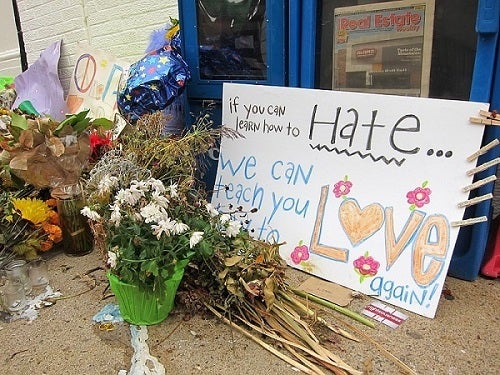 Real Estate
if you can
learn how to Hate...
we can
teach you
to
Love
again!